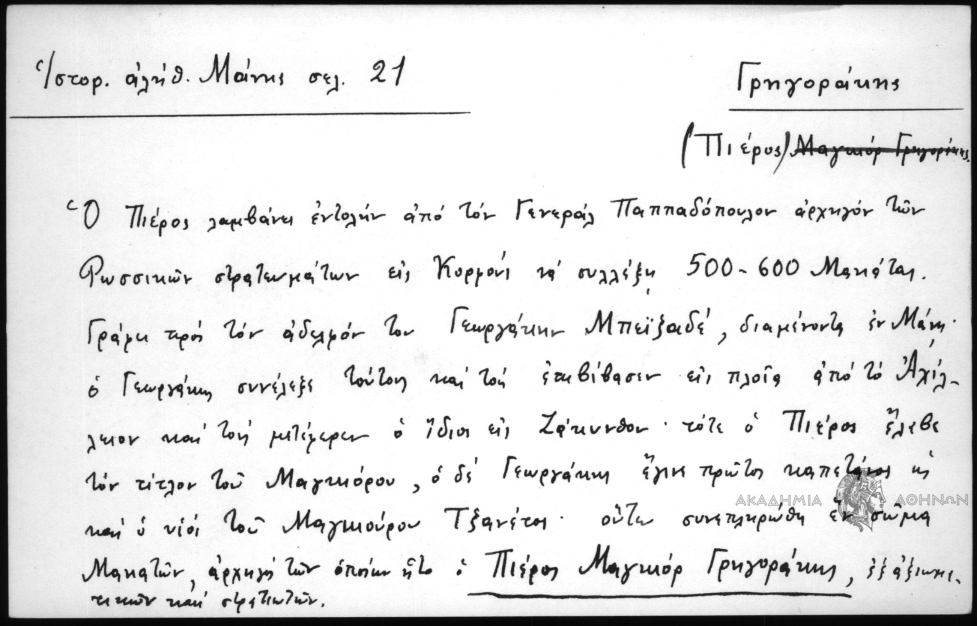 Ἱστορ. ἀλήθ. Μάνης σελ. 21
Γρηγοράκης
(Πιέρος) Μαγκιόρ Γρηγοράκης
Ὁ Πιέρος λαμβάνει ἐντολήν ἀπό τόν Γενεράλ Παππαδόπουλον ἀρχηγόν τῶν
Ρωσσικῶν στρατευμάτων εἰς Κορφούς νά συλλέξῃ 500-600 Μανιάτας.
Γράφει πρός τόν ἀδελφόν του Γεωργάκην Μπεϊζαδέ, διαμένοντα ἐν Μάνῃ·
ὁ Γεωργάκης συνέλεξε τούτους καί τούς ἐπεβίβασεν εἰς πλοῖα ἀπό τό Ἀχίλ-
λειον καί τούς μετέφερεν ὁ ἴδιος εἰς Ζάκυνθον· τότε ὁ Πιέρος ἔλαβε
τόν τίτλον τοῦ Μαγκιόρου, ὁ δέ Γεωργάκης ἔγινε πρῶτος καπετάνιος ὡς
καί ὁ υἱός τοῦ Μαγκιόρου Τζανέτος· οὕτω συνεπληρώθη ἕν σῶμα
Μανιατῶν, ἀρχηγός τῶν ὁποίων ἦτο ὁ Πιέρος Μαγκιόρ Γρηγοράκης, ἐξ ἀξιωμα-
τικῶν καί στρατιωτῶν.
ΑΚΑΔΗΜΙΑ ΑΘΗΝΩΝ